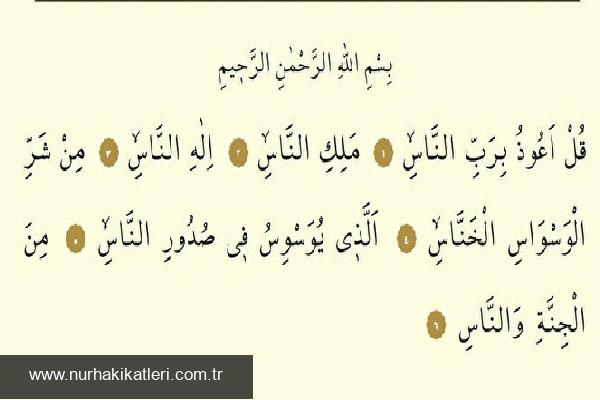 بِسْمِ اللّٰهِ الرَّحْمٰنِ الرَّح۪يمِ
قُلْ اَعُوذُ بِرَبِّ النَّاسِۙ ﴿١﴾ مَلِكِ النَّاسِۙ ﴿٢﴾ اِلٰهِ النَّاسِۙ ﴿٣﴾ مِنْ شَرِّ
الْوَسْوَاسِ الْخَنَّاسِۙ ﴿٤﴾ اَلَّذ۪ى يُوَسْوِسُ ف۪ى صُدُورِ النَّاسِۙ ﴿٥﴾ مِنَ
الْجِنَّةِ وَالنَّاسِ ﴿٦﴾
www.nurhakikatleri.com.tr